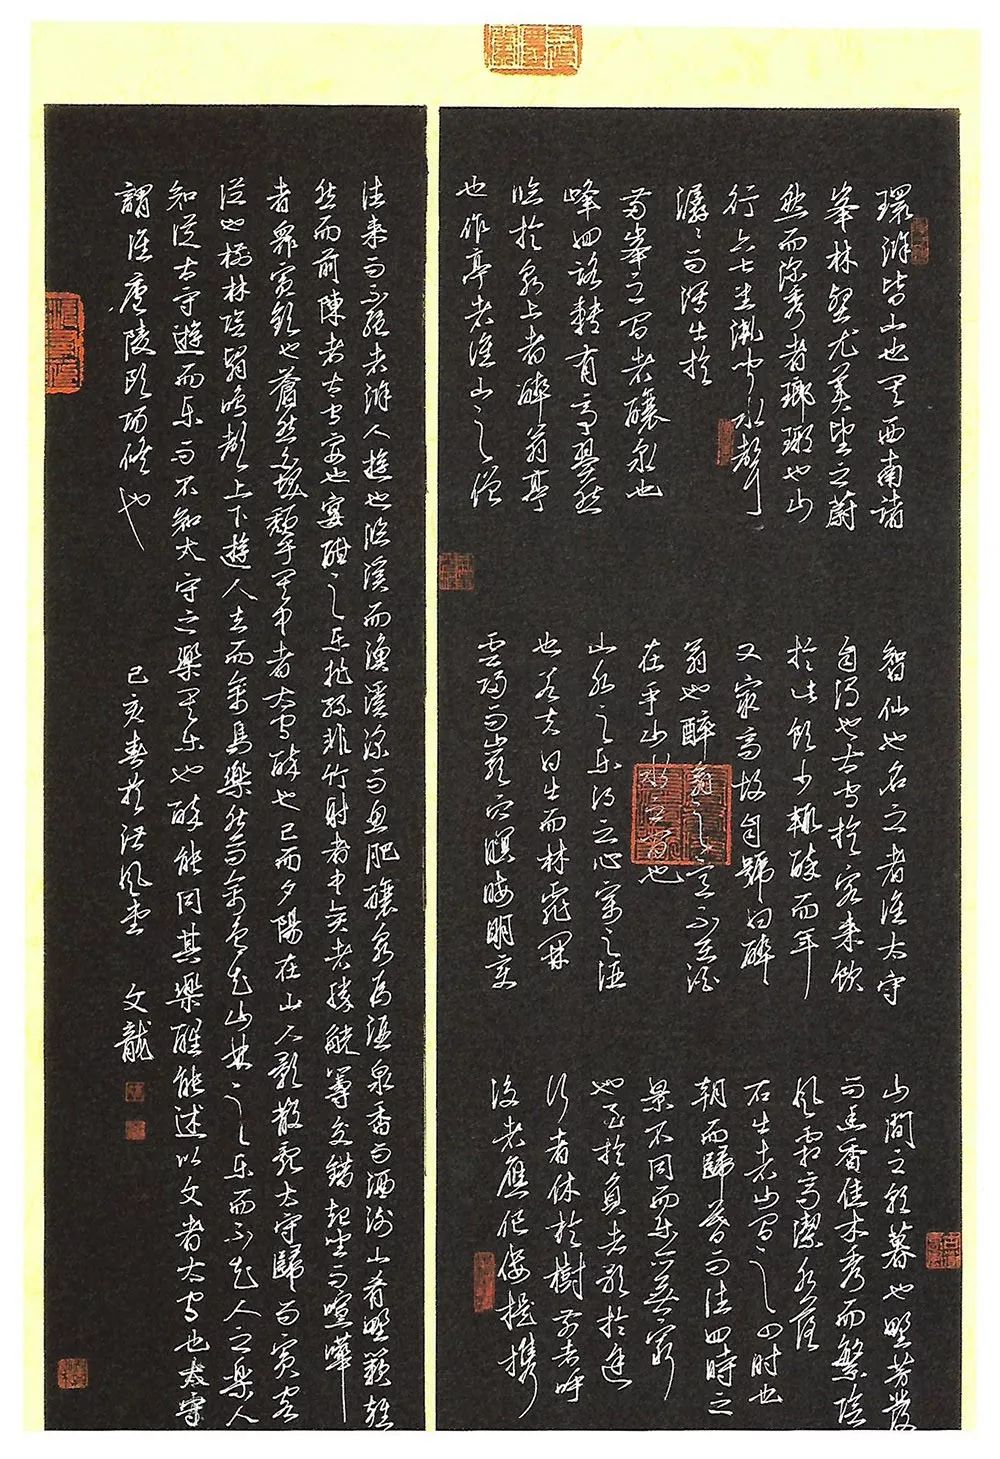 環滁皆山也其西南諸
峯林壑尤美望之蔚
然而深秀者瑯琊也山
行六七里漸聞水聲
潺〻而瀉出於
兩峯之間者釀泉也
峰回路轉有亭翼然
臨於泉上者醉翁亭
也作亭者誰山之僧
智仙也名之者誰太守
自謂也太守於客來飲
於此飲少輒醉而年
又最高故自號曰醉
翁也醉翁之意不在酒
在乎山水之間也
山水之樂得之心寓之酒
也若夫日出而林霏開
雲歸而巖穴暝晦明变
山間之朝暮也野芳發
而幽香佳木秀而繁陰
風霜高潔水落
石出者山間之四時也
朝而歸暮而往四時之
景不同而樂亦無窮
也至於負者歌於途
行者休於樹前者呼
後者應傴僂提攜
往來而不絕者滁人遊也臨溪而漁溪深而魚肥釀泉為酒泉香而酒洌山肴野蔌雜
然而前陳者太守宴也宴酣之樂非絲非竹射者中奕者勝觥籌交錯起坐而喧嘩
者衆賓歡也蒼然白髮頹乎其中者太守醉也已而夕陽在山人影散亂太守歸而賓客
從也樹林陰翳鳴聲上下遊人去而禽鳥樂然而禽鳥知山林之樂而不知人之樂人
知從太守遊而樂而不知太守之樂其樂也醉能同其樂醒能述以文者太守也太守
謂誰廬陵歐陽修也
己亥春於風堂 文龍